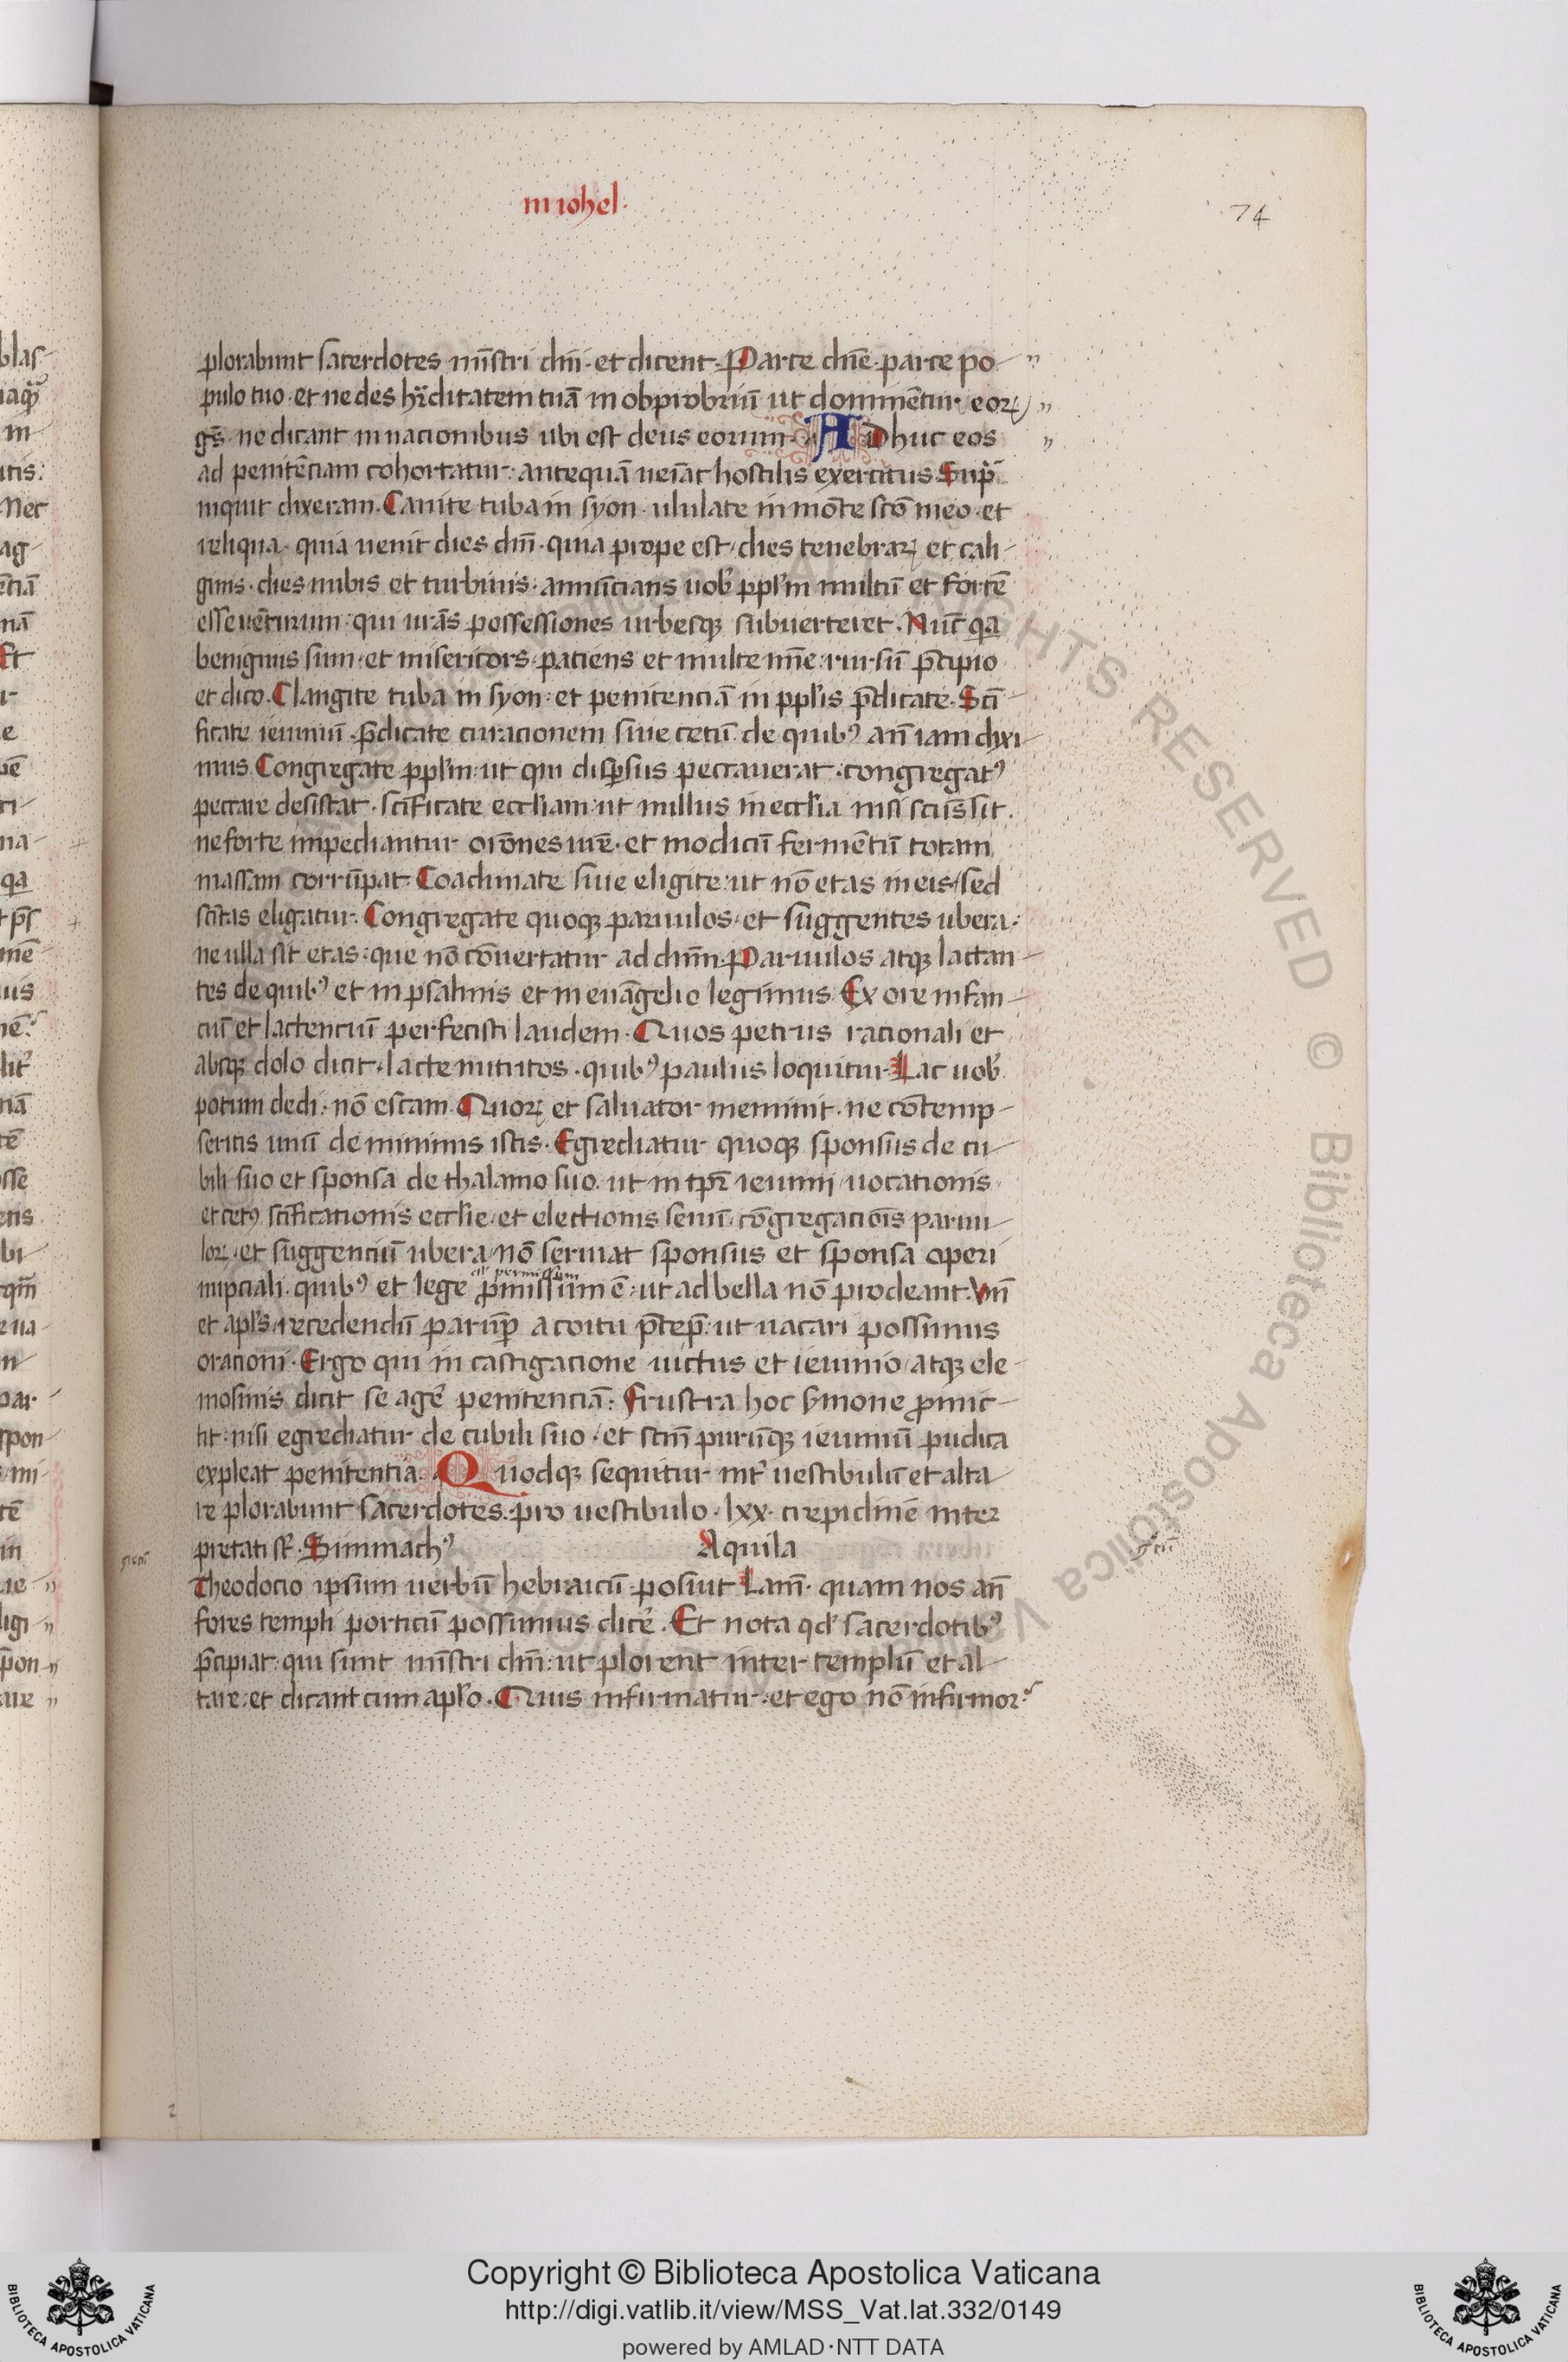 in iohel·
74
plorabunt sacerdotes mīstri dn̄i · et dicent · Parce dn̄e · parce po-
pulo tuo · et ne des hr̄ditatem tuā in obprobriū ut dominēt̄ur eoꝝ
gs̄ · ne dicant in nacionibus ubi est deus eorum · ADhuc eos
ad penitēciam cohortatur : antequā ueīat hostilis exercitus · Supͣ
inquit dixeram · Canite tuba in syon · ululate in mōte scō meo · et
reliqua · quia uenit dies dn̄i · quia prope est / dies tenebraꝝ et cali-
ginis · dies nubis et turbinis · annūcians uob̄ ppl̄m multū et fortē
esse uēturum : qui urās possessiones urbesqꝫ subuerteret · Nūc qa
benignus sum · et misericors · paciens et multe mīe · rursū p̄cipio
et dico · Clangite tuba in syon : et penitenciā in ppl̄is p̄dicate · Scī-
ficate ieiuniū · p̄dicate curacionem siue cetū de quibꝰ an̄ iam dixi-
mus Congregate ppl̄m : ut qui disꝑsus peccauerat · congregatꝰ
peccare desistat · scīficate eccl̄iam : ut nullus in eccl̄ia nisi scūs sit ·
ne forte impediantur orōnes ur̄e · et modicū fermētū totam
massam corrūpat · Coadunate siue eligite : ut nō etas in eis / sed
scītas eligatur · Congregate quoqꝫ paruulos · et suggentes ubera :
ne ulla sit etas : que nō cōuertatur ad dn̄m · Paruulos atqꝫ lactan-
tes de quibꝰ et in psalmis et in euāgelio legimus Ex ore infan-
ciū et lactenciū perfecisti laudem · Quos petrus racionali et
absqꝫ dolo dicit · lacte nutritos · quibꝰ paulus loquitur · Lac uob̄
potum dedi : nō escam · Quoꝝ et saluator meminit · ne cōtemp-
seritis unū de minimis istis · Egrediatur quoqꝫ sponsus de cu-
bili suo et sponsa de thalamo suo · ut in tp̄r̄ ieiunii / uocationis
et cetꝰ scīficationis eccl̄ie · et electionis senū · cōgregaciōis paruu-
loꝝ · et suggenciū ubera / nō seruiat sponsus et sponsa operi
al' permissum
nupciali · quibꝰ et lege ꝓmissum ē : ut ad bella nō prodeant · Vn̄
et apl̄s / recedendū parūꝑ a coitu p̄cep̄ : ut uacari possimus
oracioni · Ergo qui in castigacione uictus et ieiunio / atqꝫ ele-
mosinis dicit se agē penitenciā : frustra hoc s̄mone ꝓmit-
tit : nisi egrediatur de cubili suo · et scm̄ purūqꝫ ieiuniū pudica
expleat penitentia · Quodqꝫ sequitur int̄ uestibulū et alta-
re plorabunt sacerdotes : pro uestibulo · lxx · crepidinē inter
pretati sr̄ · Simmachꝰ Aquila
Theodocio ipsum uerbū hebraicū posiuit Lam̄ · quam nos an̄
fores templi porticū possumus dicē · Et nota qd̄ sacerdotibꝰ
p̄cipiat : qui sunt mīstri dn̄i : ut plorent inter templū et al-
tare : et dicant cum apl̄o · Quis infirmatur : et ego nō infirmor ?
2
Copyright © Biblioteca Apostolica Vaticana
http://digi.vatlib.it/view/MSS_Vat.lat.332/0149
powered by AMLAD·NTT DATA
BIBLIOTECA APOSTOLICA VATICANA
BIBLIOTECA APOSTOLICA VATICANA